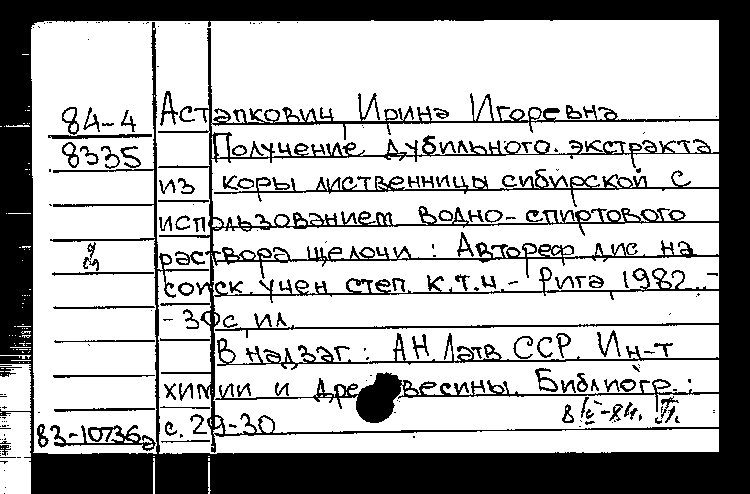 84-4 Астапкович, Ирина Игоревна
8335 Получение дубильного экстракта
из коры лиственницы сибирской с
использованием водно-спиртового
раствора щелочи : Автореф дис. на
соиск. учен степ. к.т.н. - Рига, 1982. -
- 30с, ил.
В надзаг.: АН Латв ССР. Ин-т
химии и древесины. Библиогр.:
83-10736а с. 29-30